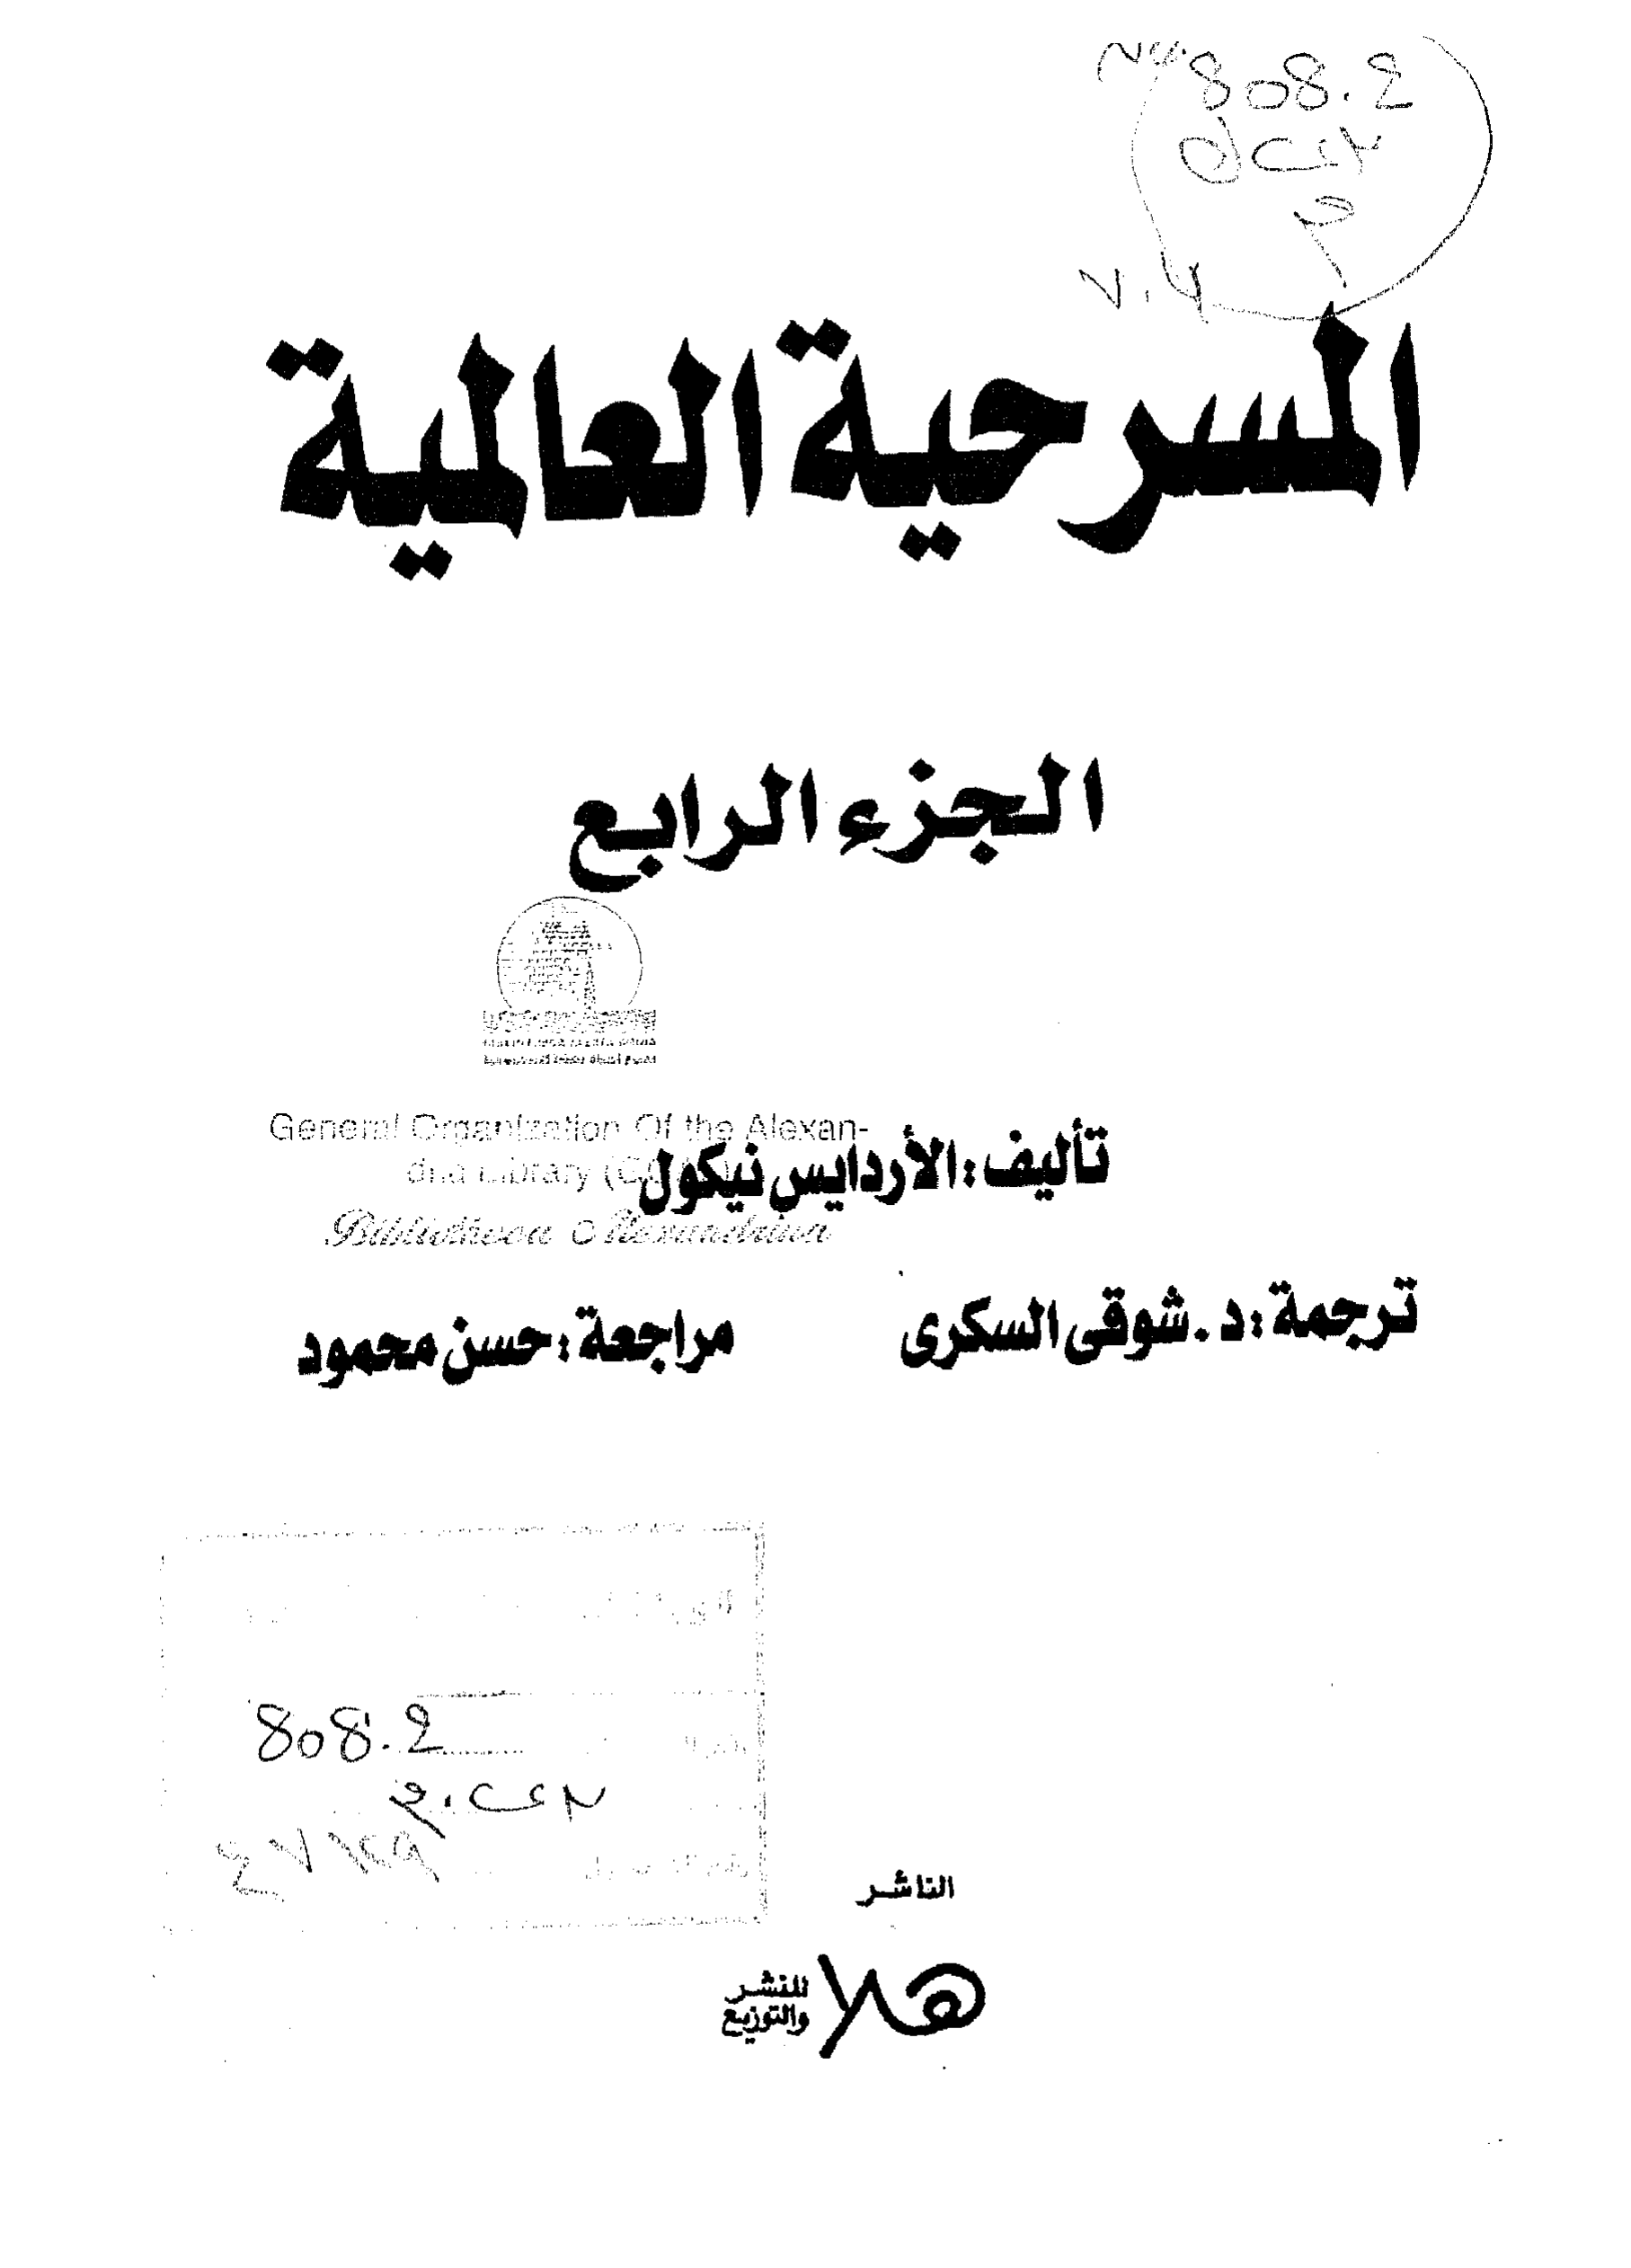 808.2
المسرحية العالمية
الجزء الرابع
General Organization Of the Alexan-
Library
Bibliotheca Alexandrina
تأليف: الأردايس نيكول
ترجمة: د. شوقى السكرى
مراجعة: حسن محمود
808.2
الناشر
هلا
للنشر
والتوزيع